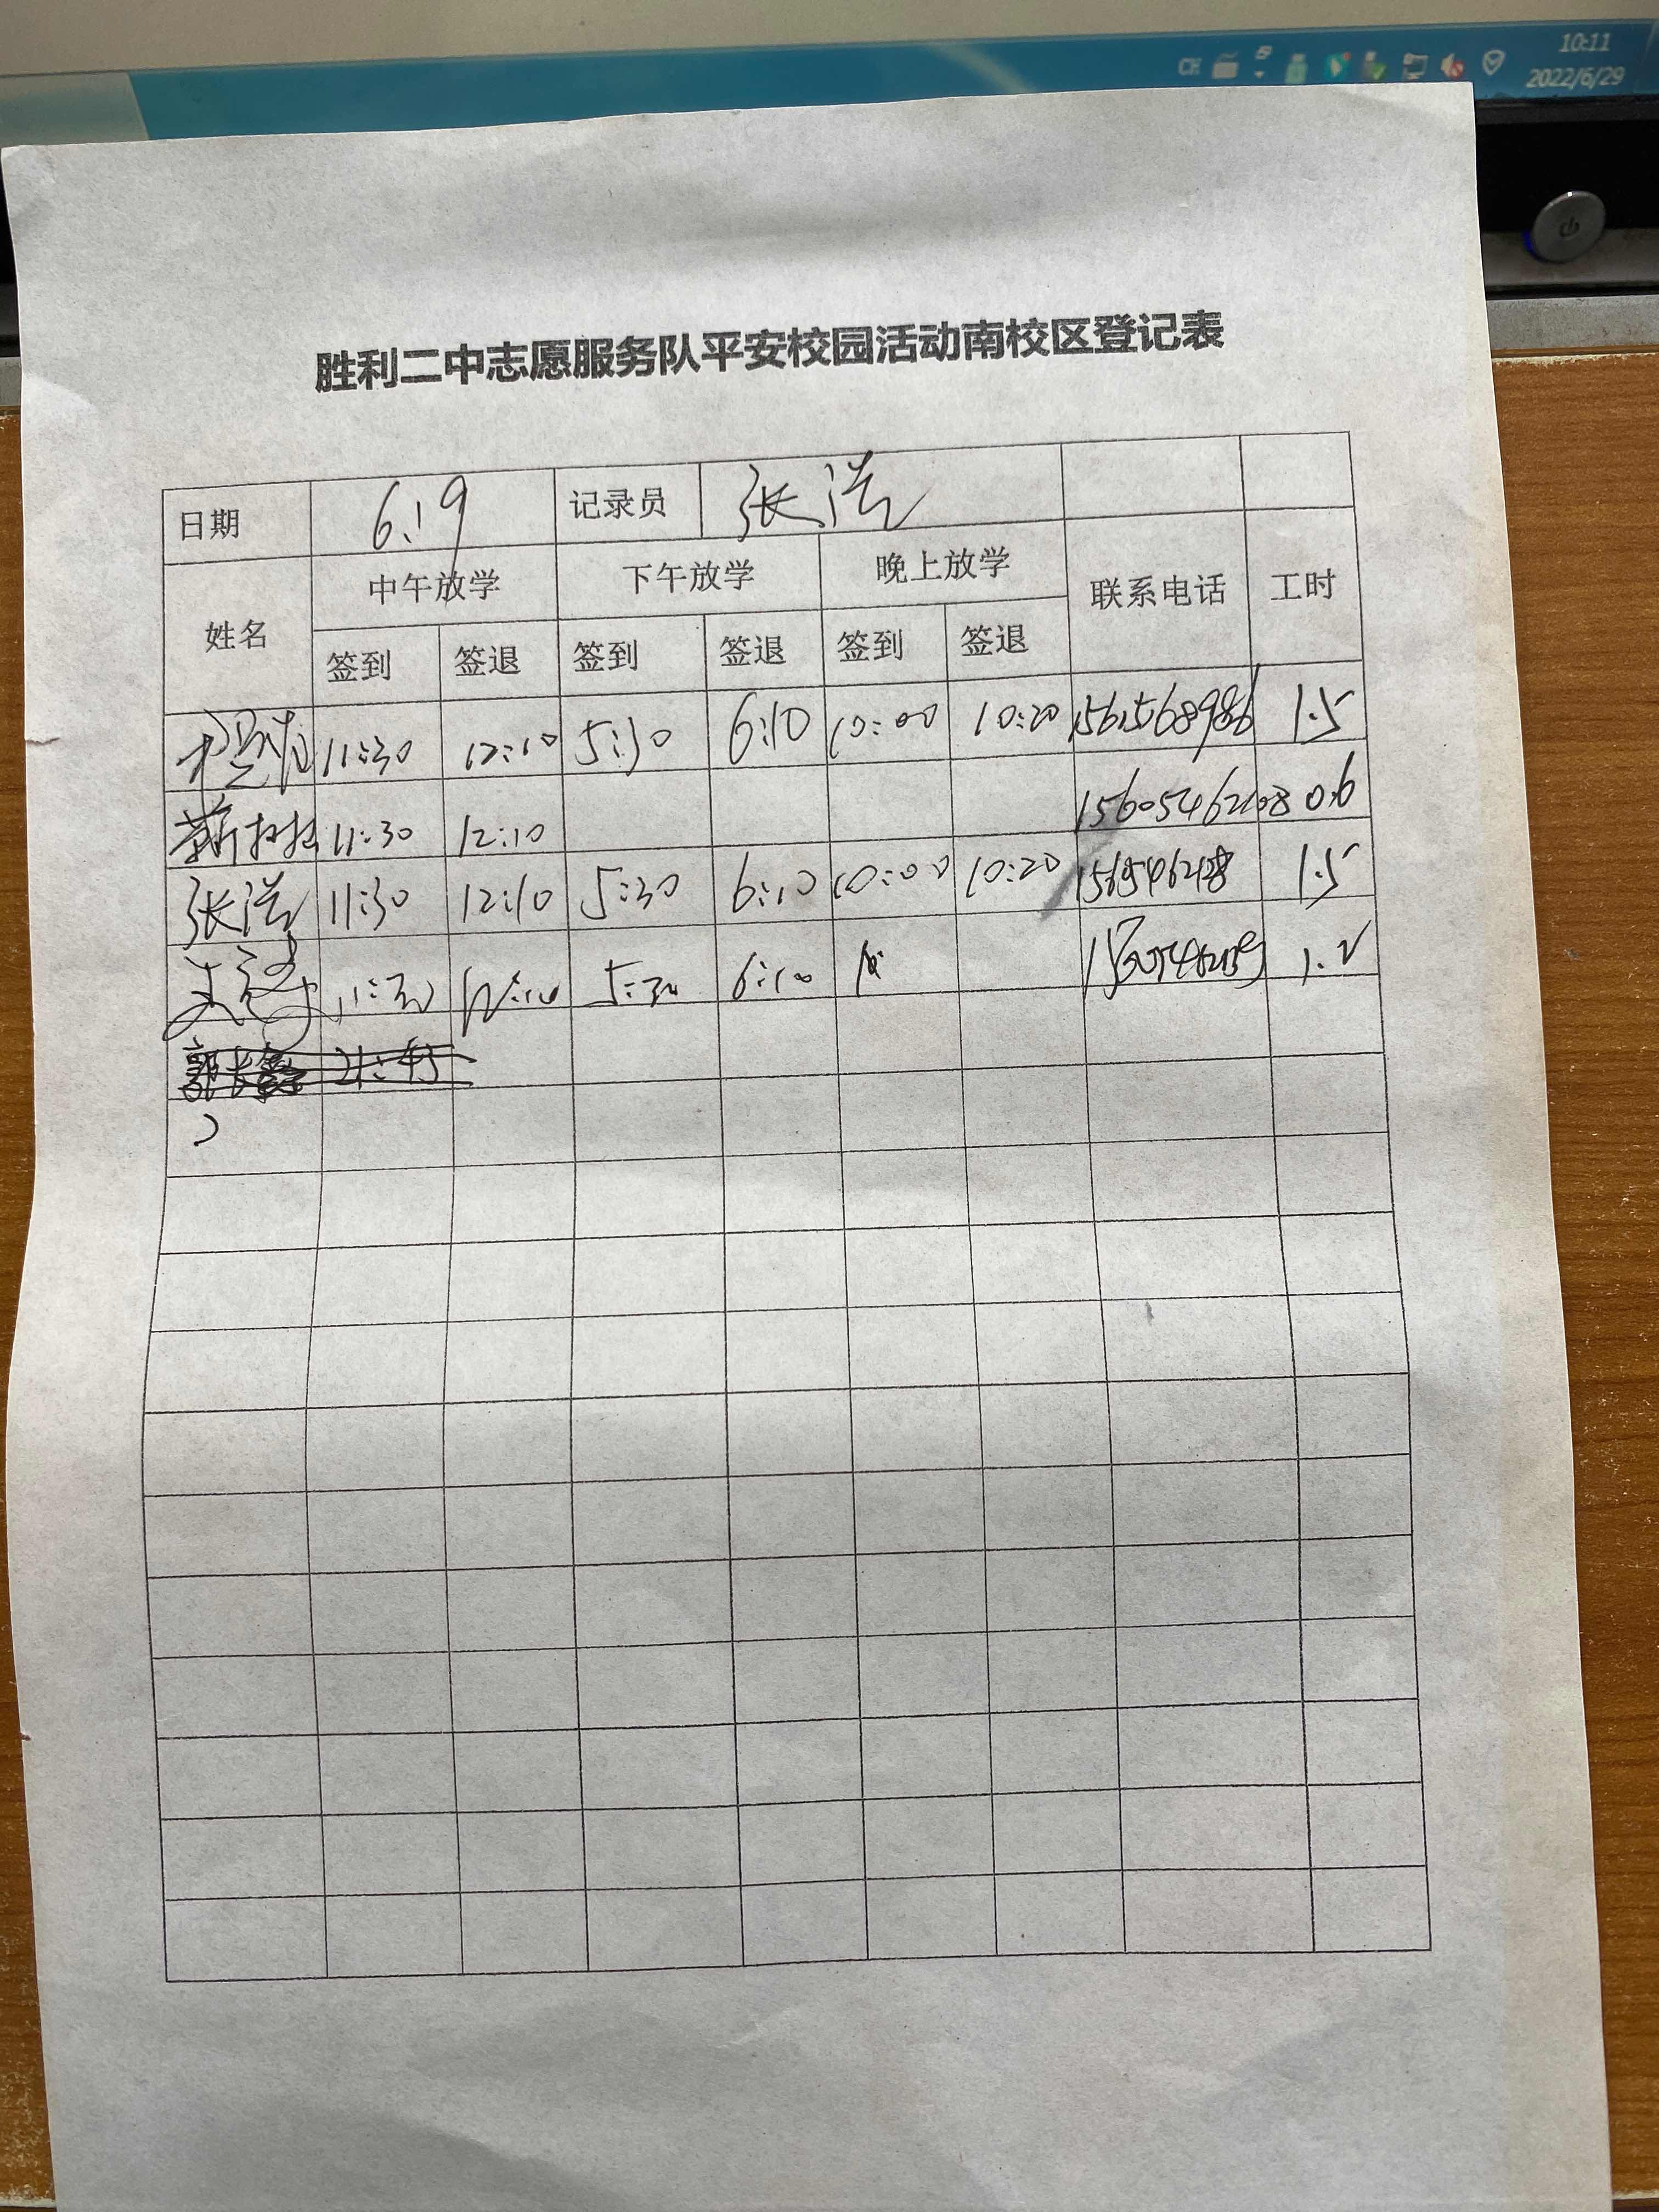 CH
10:11
2022/6/29
胜利二中志愿服务队平安校园活动南校区登记表
日期 6.19 记录员 张洪
姓名 中午放学 下午放学 晚上放学 联系电话 工时
签到 签退 签到 签退 签到 签退
11:30 12:10 5:30 6:10 10:00 10:20 1.5
11:30 12:10 15605462208 0.6
张洪 11:30 12:10 5:30 6:10 10:00 10:20 1.5
11:30 12:10 5:30 6:10 1.2
21:45